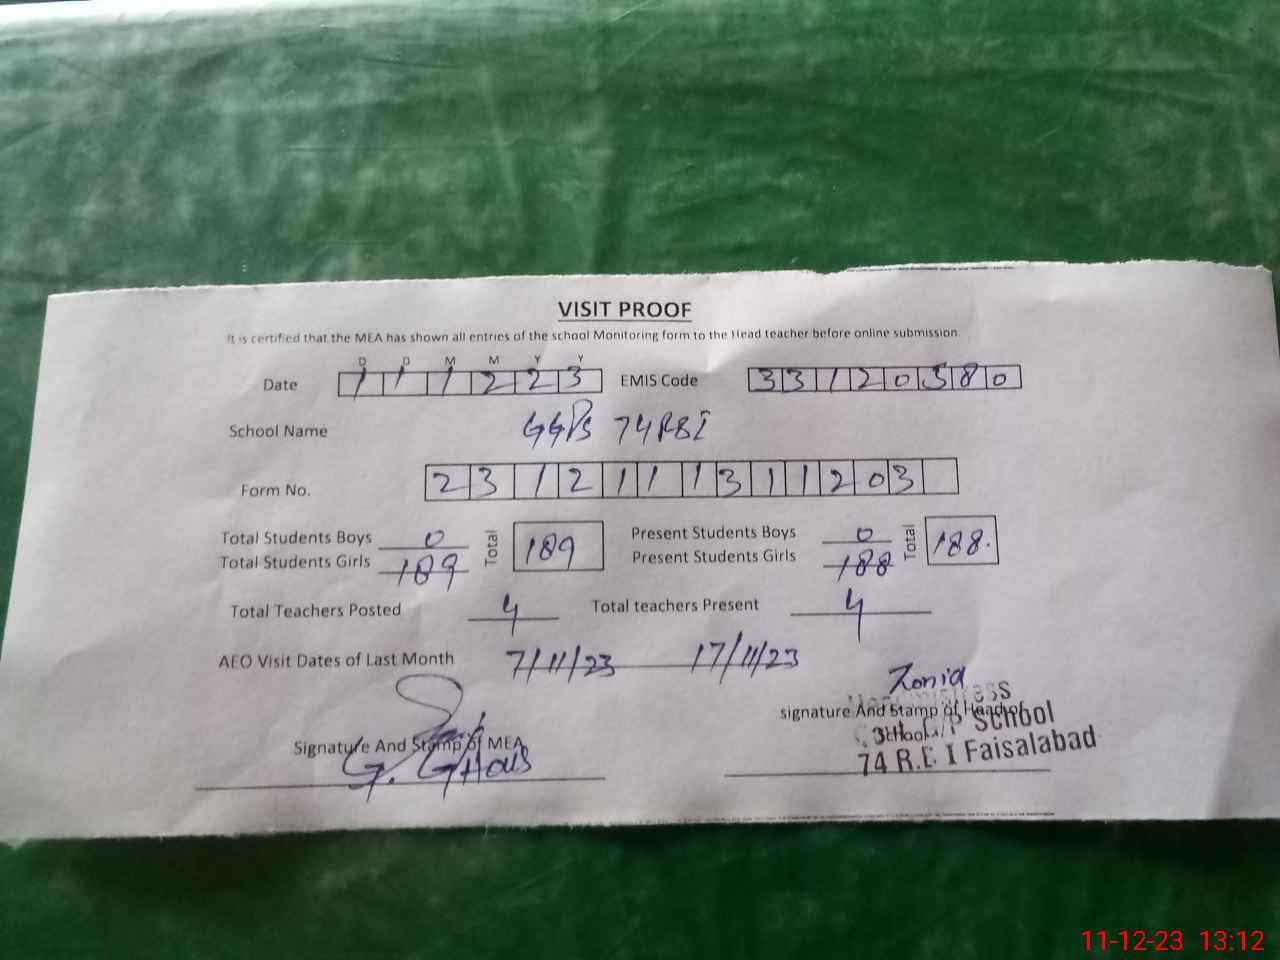 VISIT PROOF
It is certified that the MEA has shown all entries of the school Monitoring form to the Head teacher before online submission.
D D M M Y Y
Date 1 1 1 2 2 3 EMIS Code 3 3 1 2 0 5 8 0
School Name GGPS 74 RBI
Form No. 2 3 1 2 1 1 1 3 1 1 2 0 3
Total Students Boys 0 Total 189 Present Students Boys 0 Total 188.
Total Students Girls 189 Present Students Girls 188
Total Teachers Posted 4 Total teachers Present 4
AEO Visit Dates of Last Month 7/11/23 17/11/23
Zonia
signature And Stamp of Head of
School
School
Signature And Stamp of MEA
G. GHous
74 R.B I Faisalabad
11-12-23 13:12